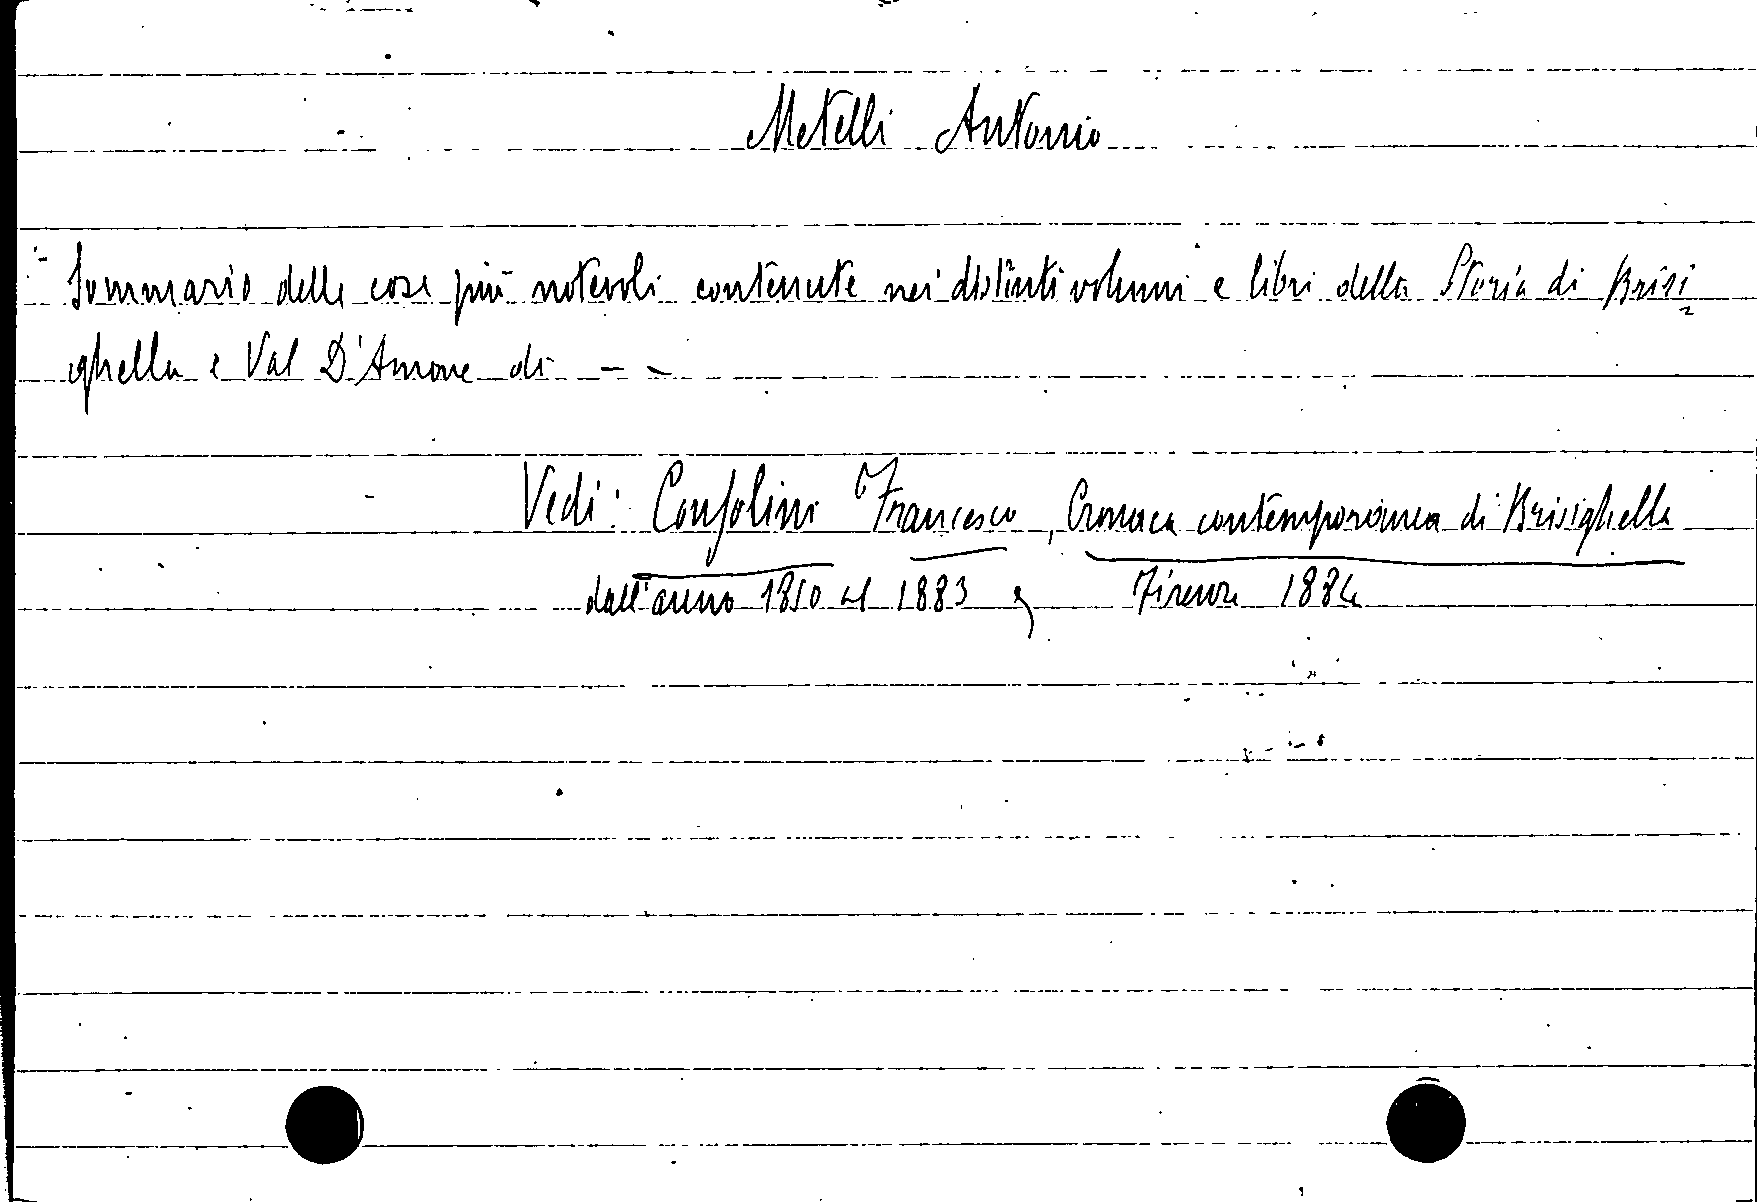 Metelli Antonio
Sommario delle cose più notevoli contenute nei distinti volumi e libri della Storia di Brisi
ghella e Val D'Amone di - -
Vedi: Consolini Francesco, Cronaca contemporanea di Brisighella
dall'anno 1850 al 1883, Firenze 1884